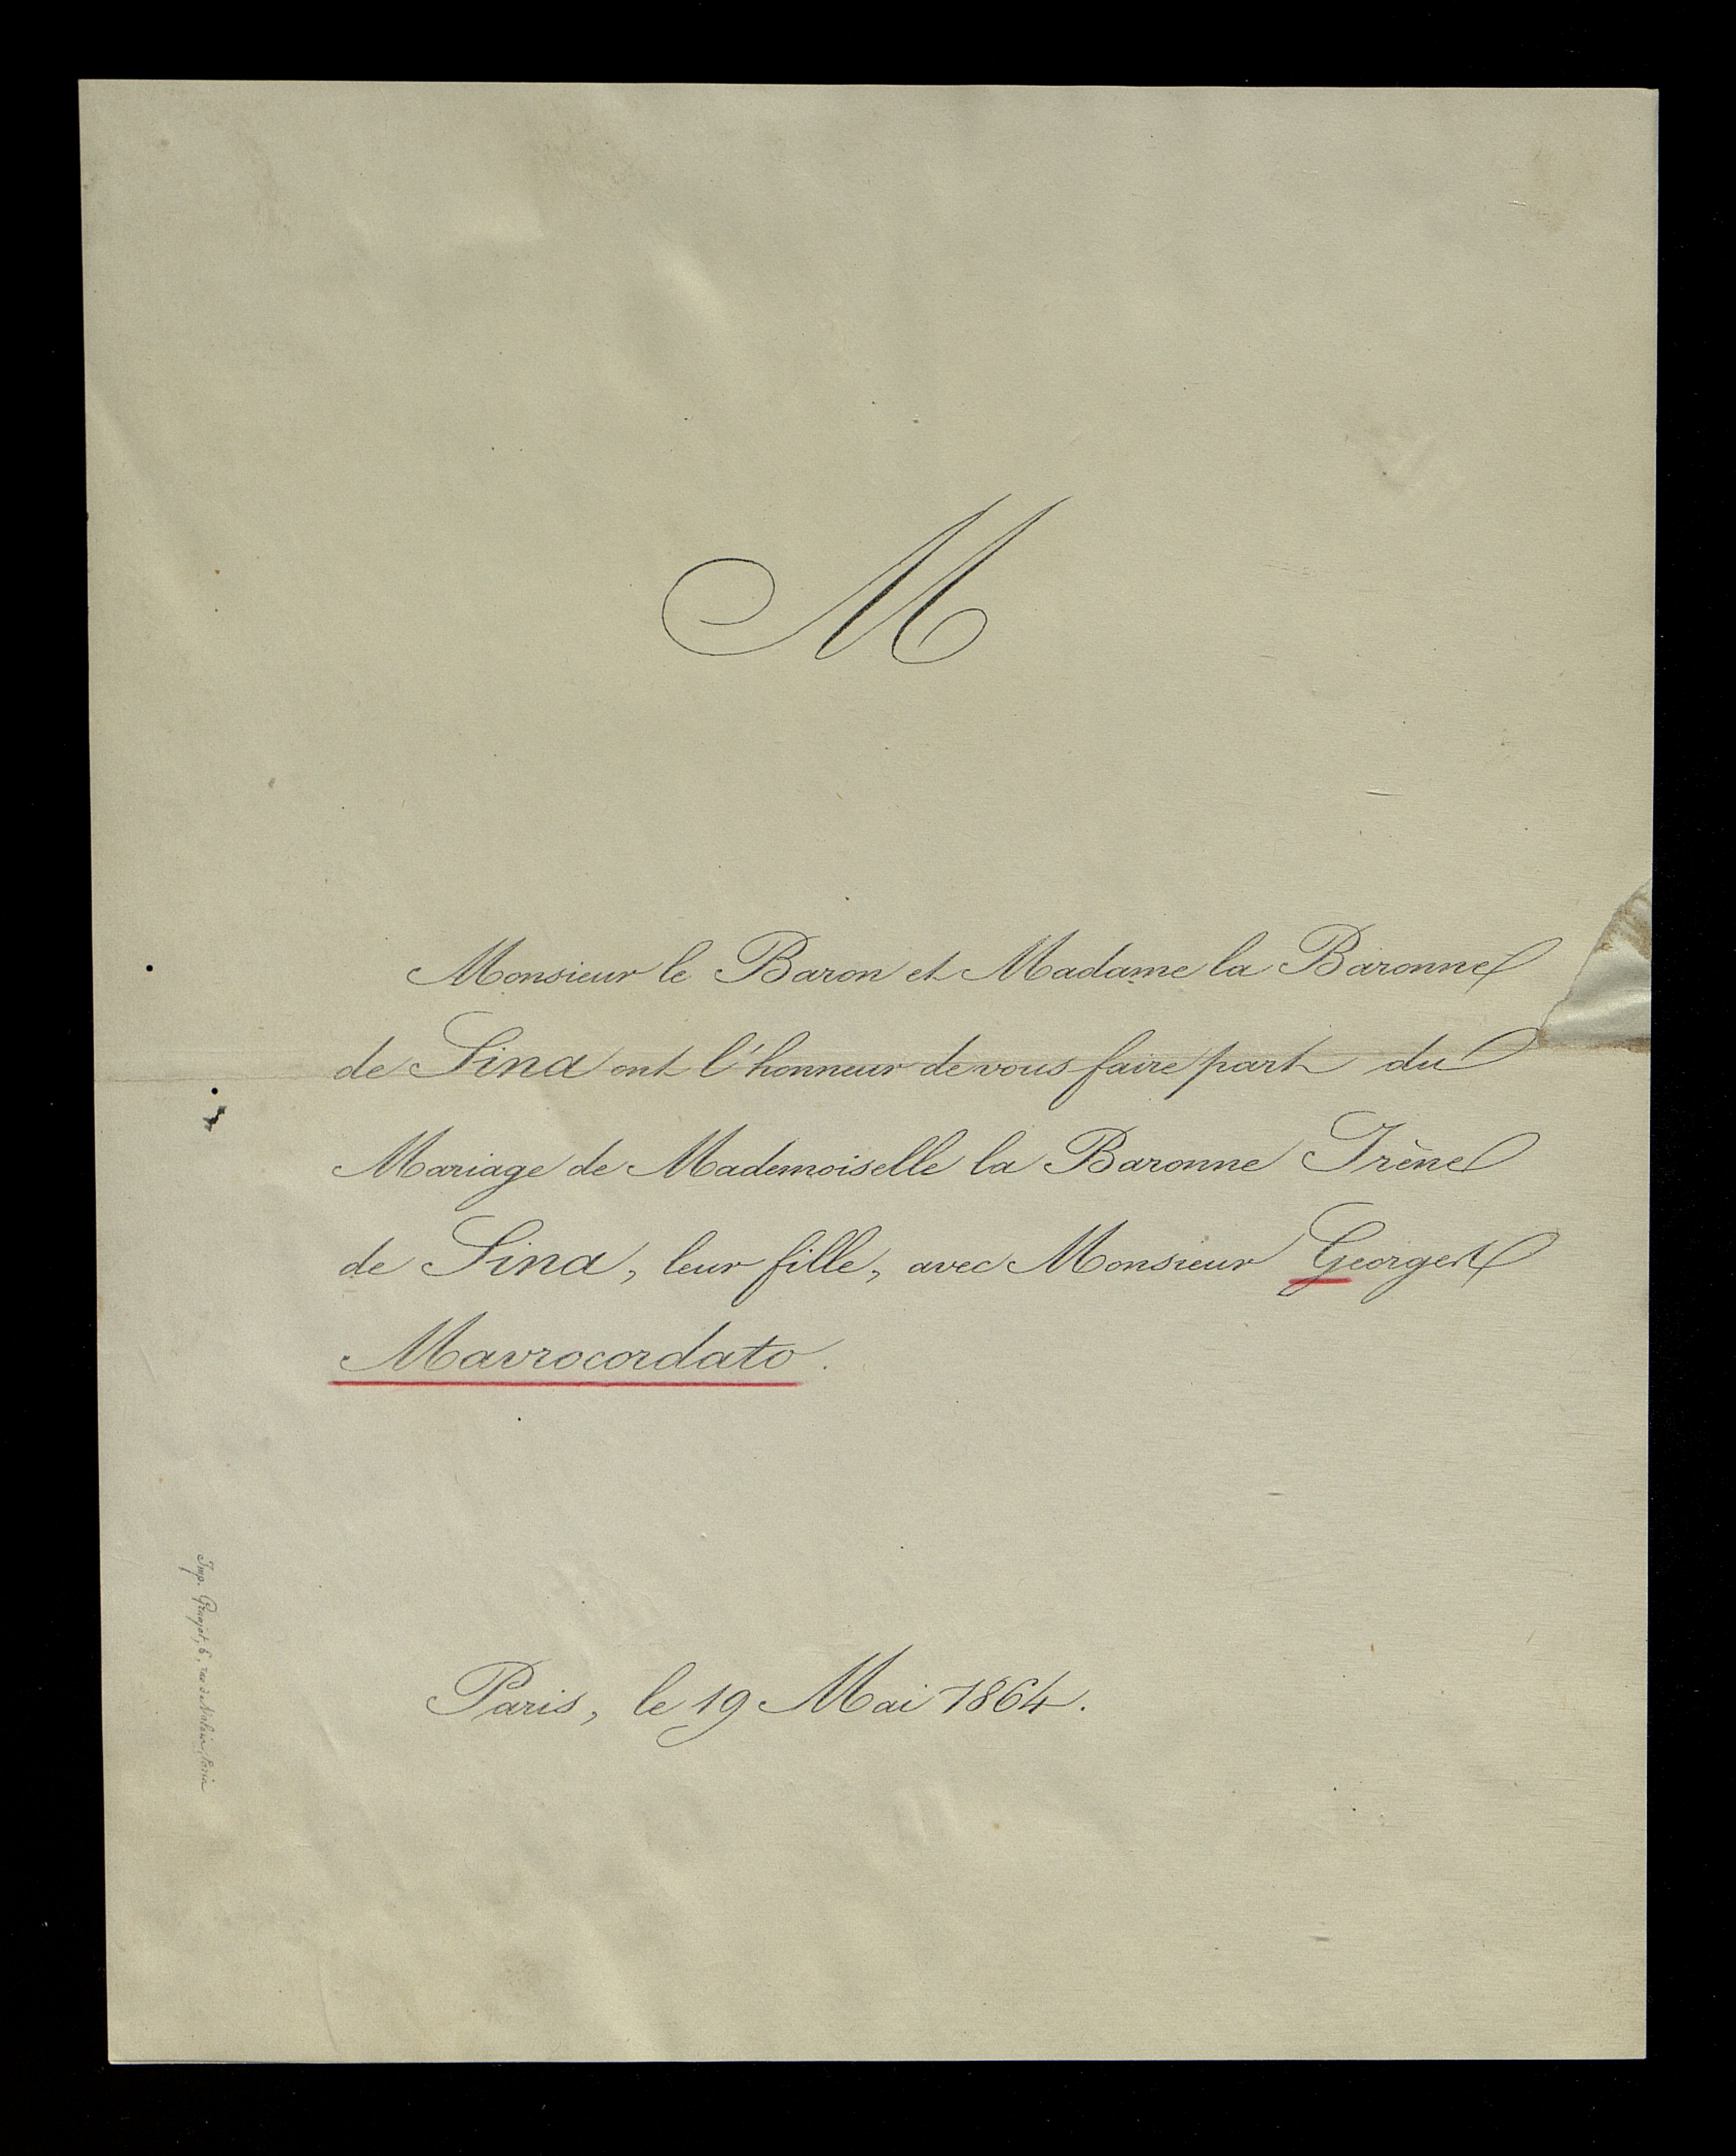 M
Monsieur le Baron et Madame la Baronne
de Sina ont l'honneur de vous faire part du
Mariage de Mademoiselle la Baronne Irène
de Sina, leur fille, avec Monsieur Georges
Mavrocordato.
Paris, le 19 Mai 1864.
Imp. 6, rue de Valois, Paris